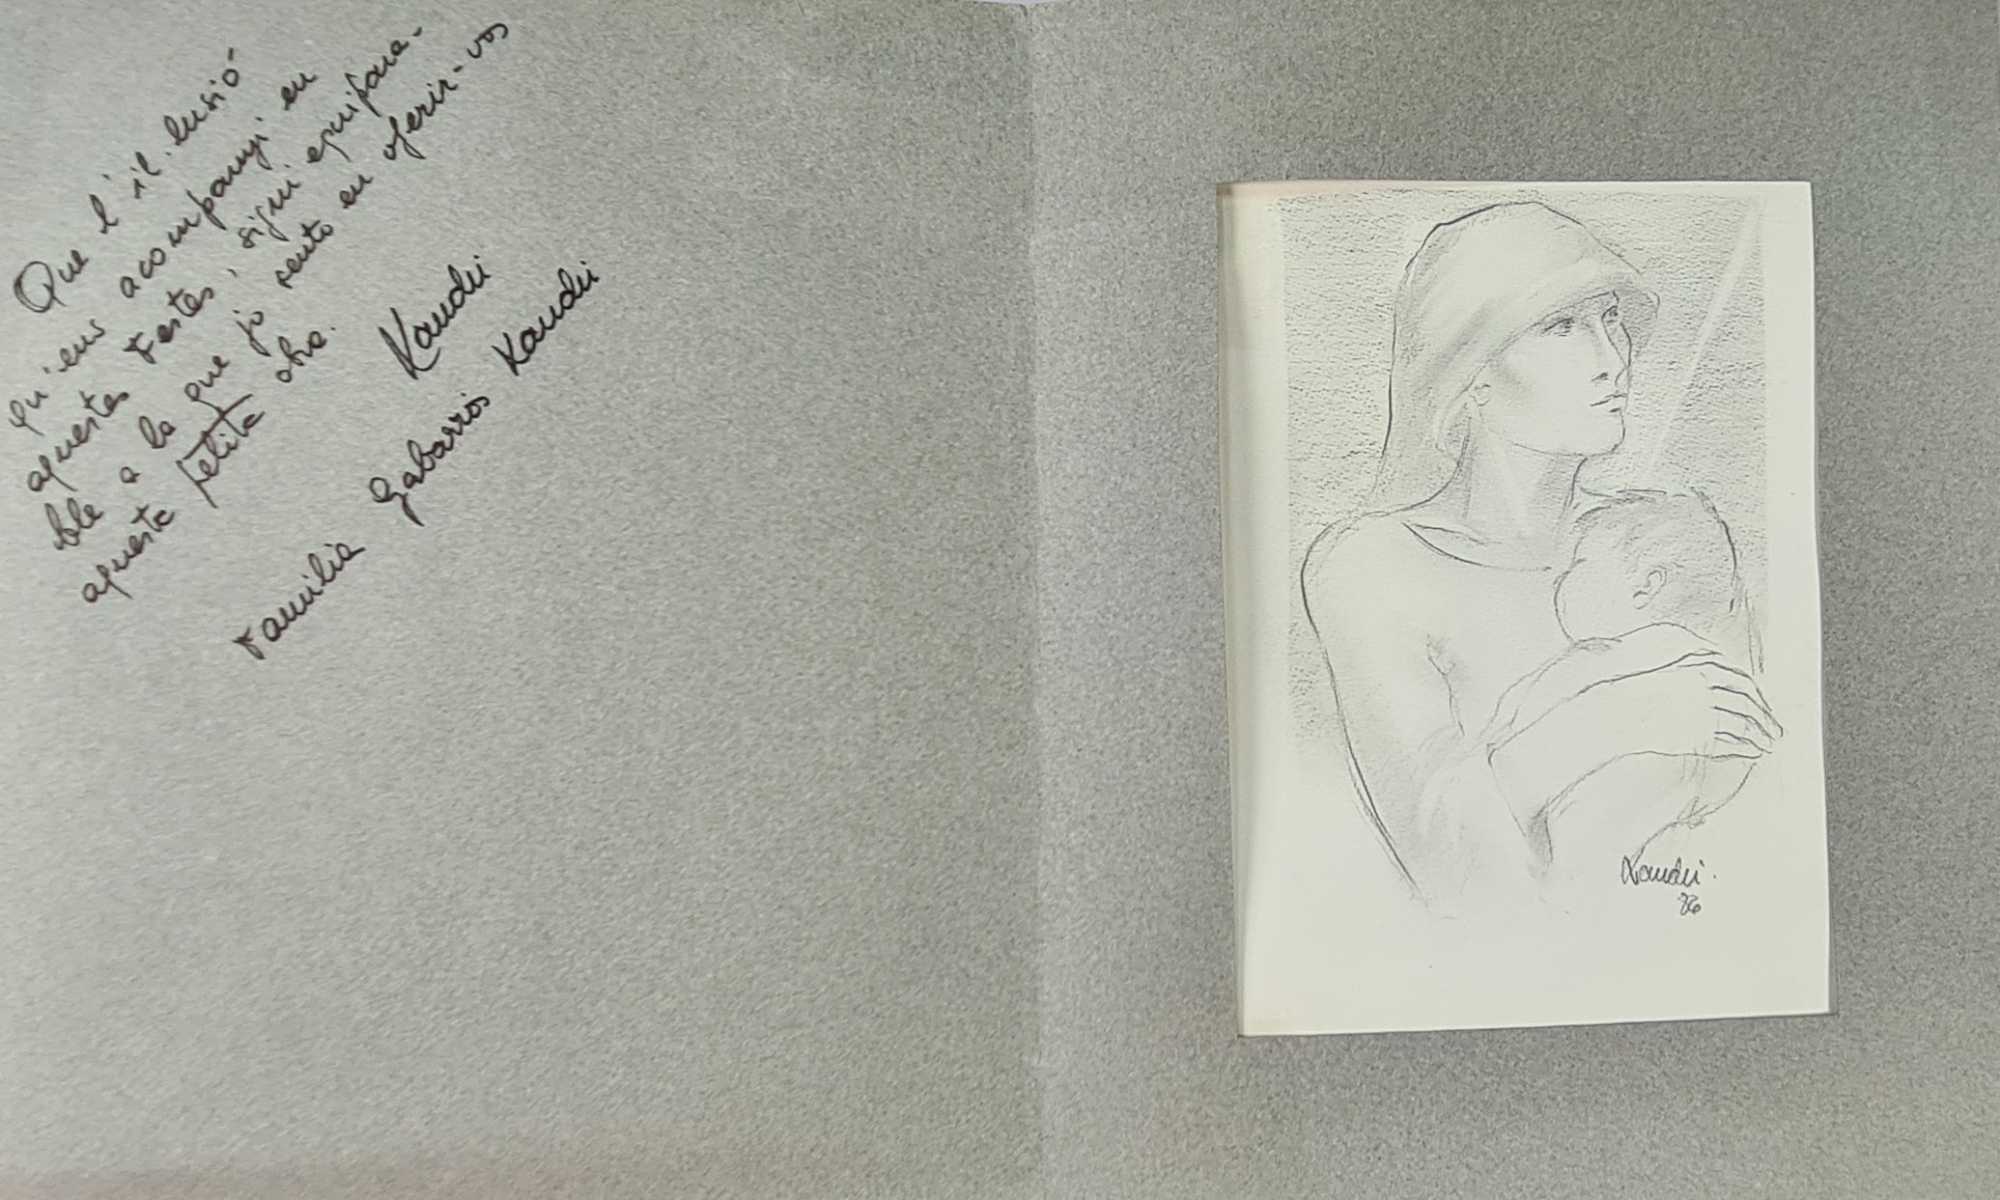 Que l'il·lusió
qu'ens acompanyi en
aquestes Festes, sigui equipara-
ble a la que jo sento en oferir-vos
aquesta petita obra.
Xandri
Familia Gabarrós Xandri
Xandri.
86